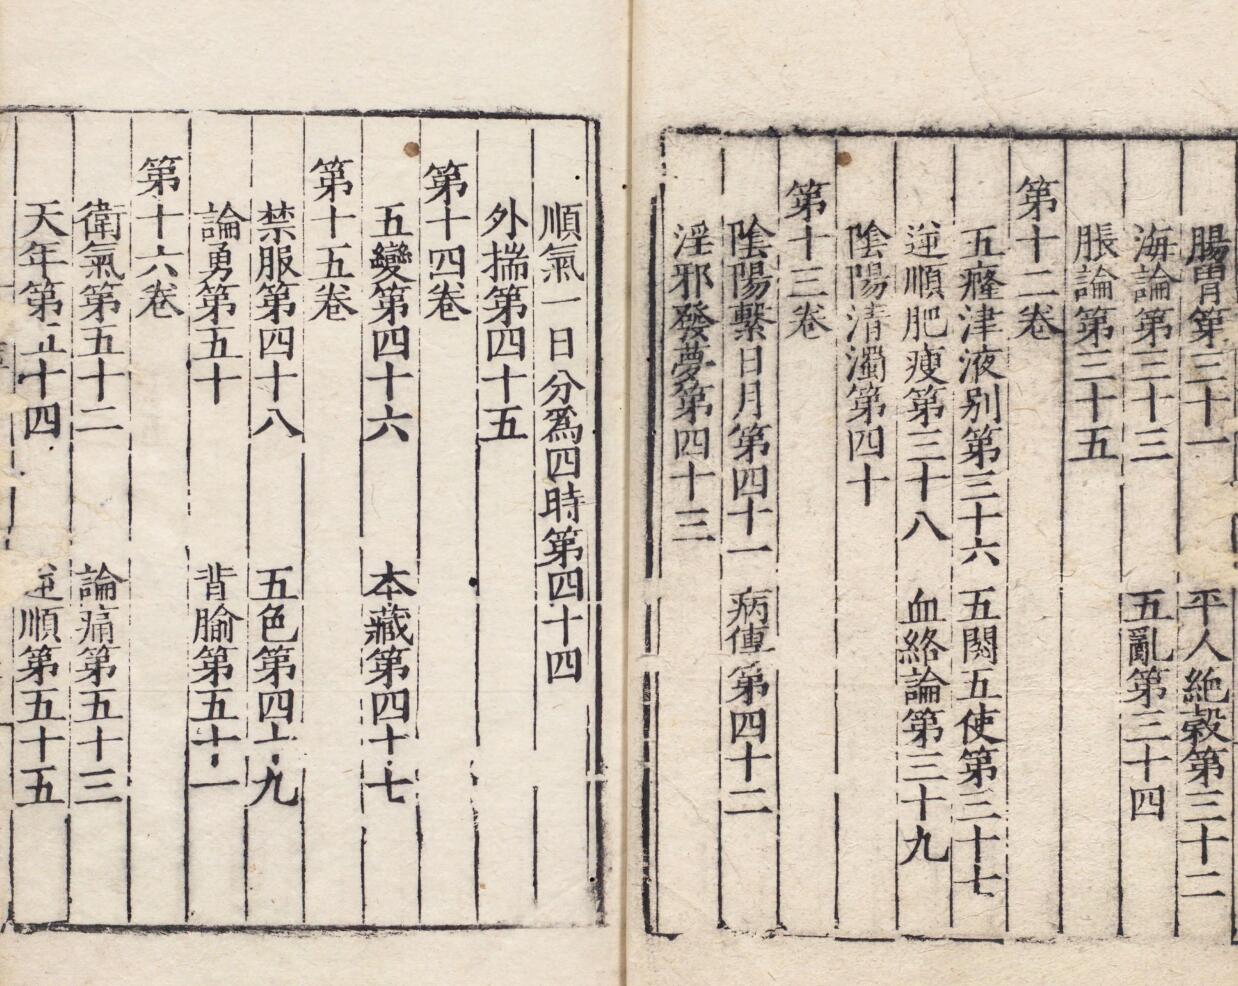 腸胃第三十一　平人絶穀第三十二
海論第三十三　五亂第三十四
脹論第三十五
第十二卷
五癃津液别第三十六　五閱五使第三十七
逆順肥瘦第三十八　血絡論第三十九
陰陽清濁第四十
第十三卷
陰陽繫日月第四十一　病傳第四十二
淫邪發夢第四十三
順氣一日分爲四時第四十四
外揣第四十五
第十四卷
五變第四十六　本藏第四十七
第十五卷
禁服第四十八　五色第四十九
論勇第五十　背腧第五十一
第十六卷
衛氣第五十二　論痛第五十三
天年第五十四　逆順第五十五